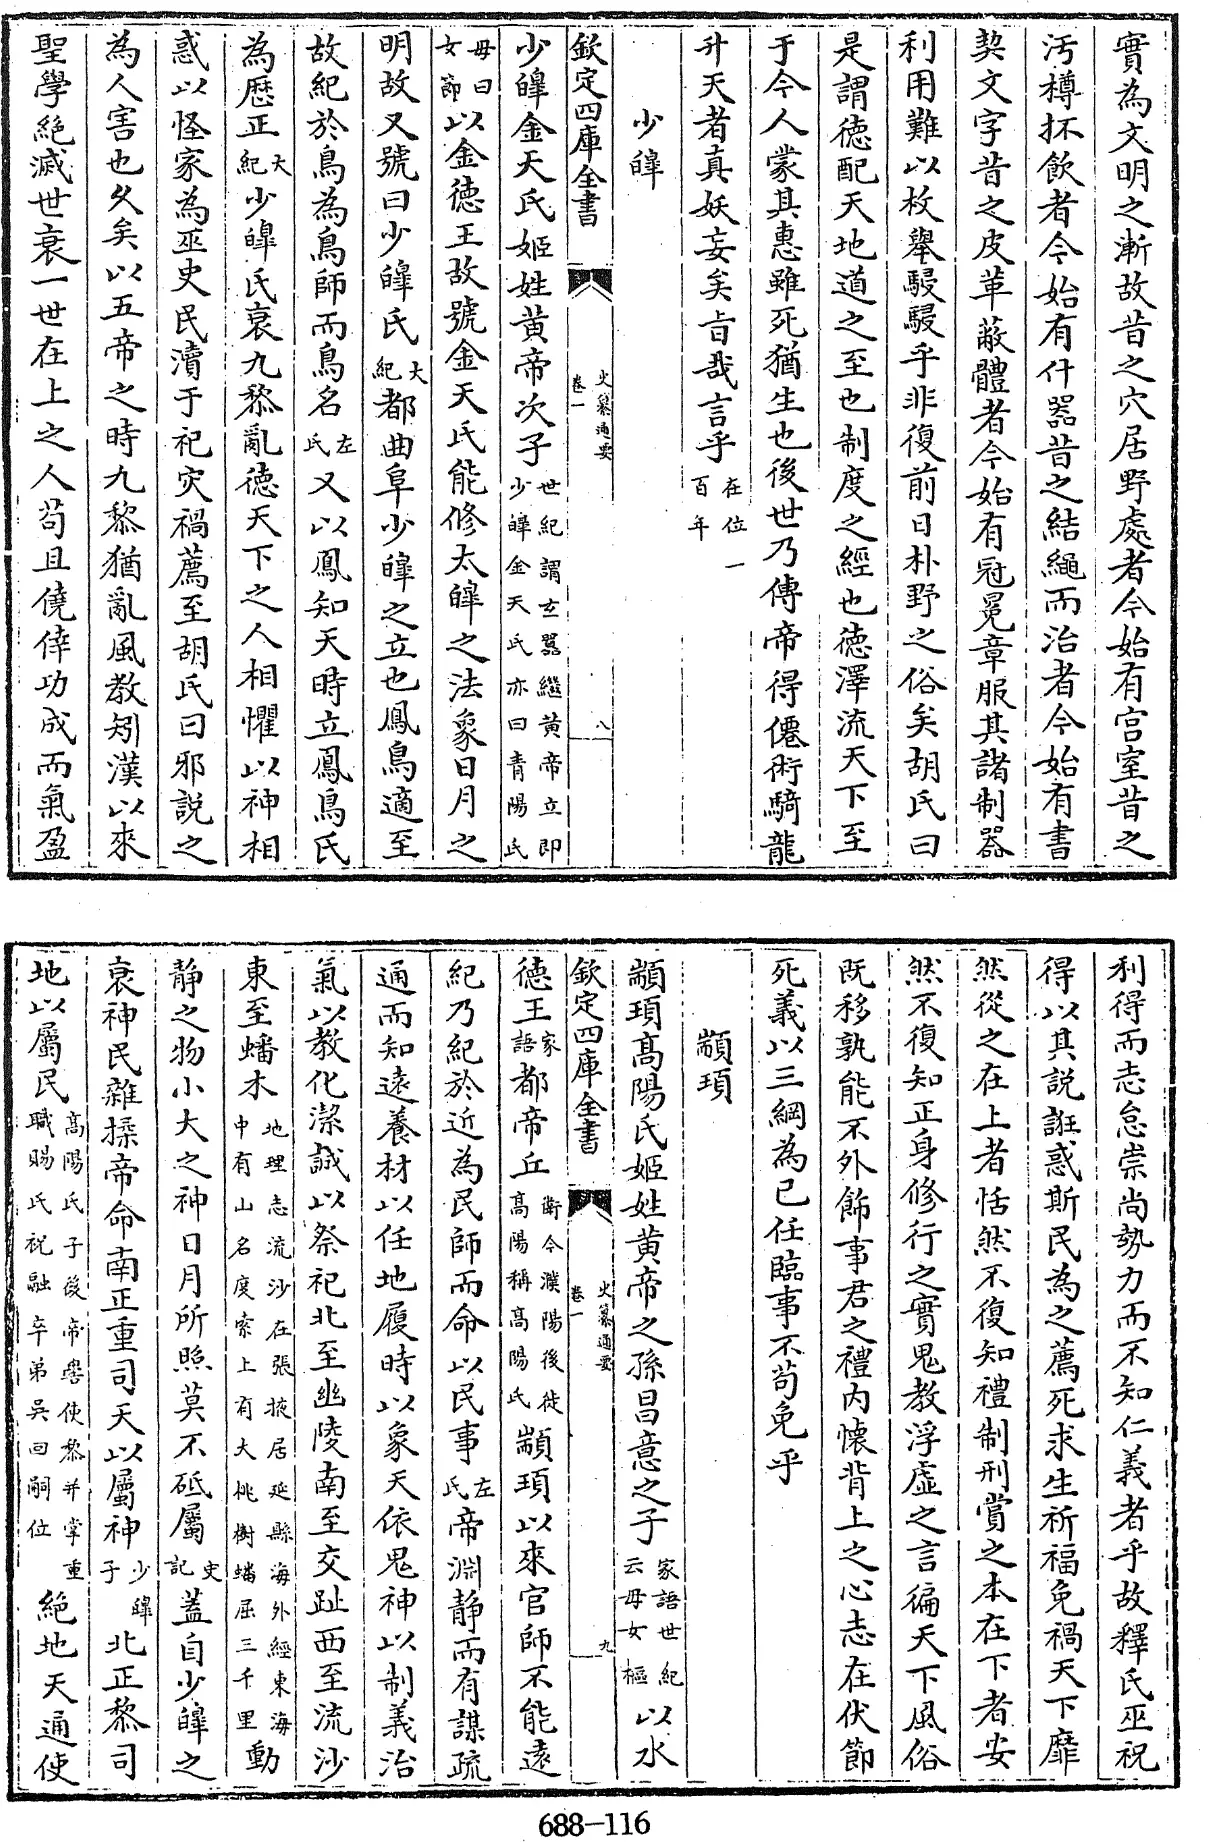 實為文明之漸故昔之穴居野處者今始有宫室昔之
汚樽抔飲者今始有什器昔之結繩而治者今始有書
契文字昔之皮革蔽體者今始有冠冕章服其諸制器
利用難以枚舉駸駸乎非復前日朴野之俗矣胡氏曰
是謂徳配天地道之至也制度之經也徳澤流天下至
于今人蒙其惠雖死猶生也後世乃傳帝得僊術騎龍
升天者真妖妄矣㫖哉言乎在位一百年
少皥
欽定四庫全書
史纂通要
卷一
八
少皥金天氏姬姓黄帝次子世紀謂玄囂繼黄帝立即少皥金天氏亦曰青陽氏
母曰女節以金徳王故號金天氏能修太皥之法象日月之
明故又號曰少皥氏大紀都曲阜少皥之立也鳳鳥適至
故紀於鳥為鳥師而鳥名左氏又以鳳知天時立鳳鳥氏
為厯正大紀少皥氏衰九黎亂徳天下之人相懼以神相
惑以怪家為巫史民瀆于祀灾禍薦至胡氏曰邪説之
為人害也久矣以五帝之時九黎猶亂風教矧漢以來
聖學絶滅世衰一世在上之人苟且僥倖功成而氣盈
利得而志怠崇尚勢力而不知仁義者乎故釋氏巫祝
得以其説誑惑斯民為之薦死求生祈福免禍天下靡
然從之在上者恬然不復知禮制刑賞之本在下者安
然不復知正身修行之實鬼教浮虛之言徧天下風俗
既移孰能不外飾事君之禮内懐背上之心志在伏節
死義以三綱為已任臨事不苟免乎
顓頊
顓頊髙陽氏姬姓黄帝之孫昌意之子家語世紀云母女樞以水
欽定四庫全書
史纂通要
卷一
九
德王家語都帝丘衛今濮陽後徙髙陽稱髙陽氏顓頊以來官師不能遠
紀乃紀於近為民師而命以民事左氏帝淵静而有謀疏
通而知遠養材以任地履時以象天依鬼神以制義治
氣以教化潔誠以祭祀北至幽陵南至交趾西至流沙
東至蟠木地理志流沙在張掖居延縣海外經東海中有山名度索上有大桃樹蟠屈三千里動
静之物小大之神日月所照莫不砥屬史記蓋自少皥之
衰神民雜揉帝命南正重司天以屬神少皥子北正黎司
地以屬民髙陽氏子後帝嚳使黎并掌重職賜氏祝融卒弟吳回嗣位絶地天通使
688-116